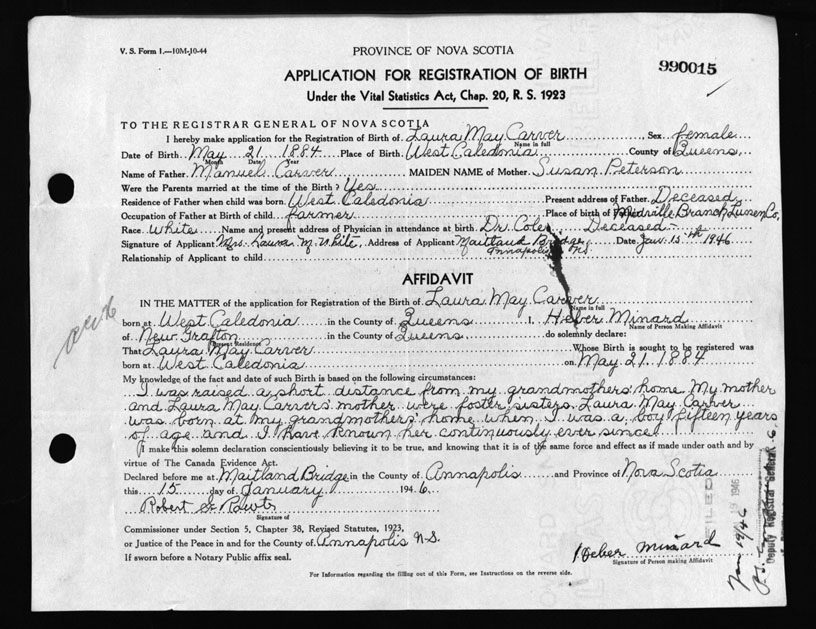 V. S. Form 1.—10M-10-44
PROVINCE OF NOVA SCOTIA
990015
APPLICATION FOR REGISTRATION OF BIRTH
Under the Vital Statistics Act, Chap. 20, R. S. 1923
TO THE REGISTRAR GENERAL OF NOVA SCOTIA
I hereby make application for the Registration of Birth of Laura May Carver Sex female
Name in full
Date of Birth May 21 1884 Place of Birth West Caledonia County of Queens
Month Date Year
Name of Father Manuel Carver MAIDEN NAME of Mother Susan Peterson
Were the Parents married at the time of the Birth? Yes
Residence of Father when child was born West Caledonia Present address of Father Deceased
Occupation of Father at Birth of child farmer Place of birth of Branch Co,
Race White Name and present address of Physician in attendance at birth Dr. Cole, Deceased
Signature of Applicant Mrs. Laura M. White, Address of Applicant Maitland Bridge Date Jan. 15th 1946
Annapolis NS
Relationship of Applicant to child
AFFIDAVIT
IN THE MATTER of the application for Registration of the Birth of Laura May Carver
Name in full
born at West Caledonia in the County of Queens I, Heber Minard
Name of Person Making Affidavit
of New Grafton in the County of Queens do solemnly declare:
Present Residence
That Laura May Carver Whose Birth is sought to be registered was
born at West Caledonia on May 21, 1884
My knowledge of the fact and date of such Birth is based on the following circumstances:
I was raised a short distance from my grandmothers' home. My mother
and Laura May Carvers' mother were foster sisters. Laura May Carver
was born at my grandmothers' home when I was a boy fifteen years
of age and I have known her continuously ever since.
I make this solemn declaration conscientiously believing it to be true, and knowing that it is of the same force and effect as if made under oath and by
virtue of The Canada Evidence Act.
Declared before me at Maitland Bridge in the County of Annapolis and Province of Nova Scotia
this 15 day of January 1946
Robert
Signature of
Commissioner under Section 5, Chapter 38, Revised Statutes, 1923,
or Justice of the Peace in and for the County of Annapolis N-S.
If sworn before a Notary Public affix seal.
Heber Minard
Signature of Person making Affidavit
For Information regarding the filling out of this Form, see Instructions on the reverse side.
FILED
1946
Deputy Registrar General
Jan 19/46